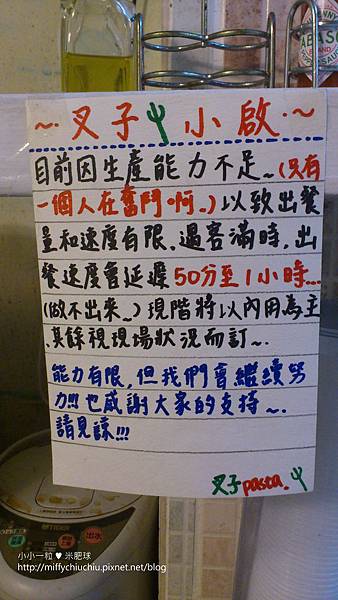 ～叉子小啟～
目前因生產能力不足~(只有
一個人在奮鬥啊..)以致出餐
量和速度有限.遇客滿時,出
餐速度會延遲50分至1小時...
(做不出來..)現階將以內用為主
.其餘視現場狀況而訂~.
能力有限,但我們會繼續努
力!!!也感謝大家的支持~.
請見諒!!!
叉子pasta.
TIGER
出水
小小一粒♥米肥球
http://miffychiuchiu.pixnet.net/blog